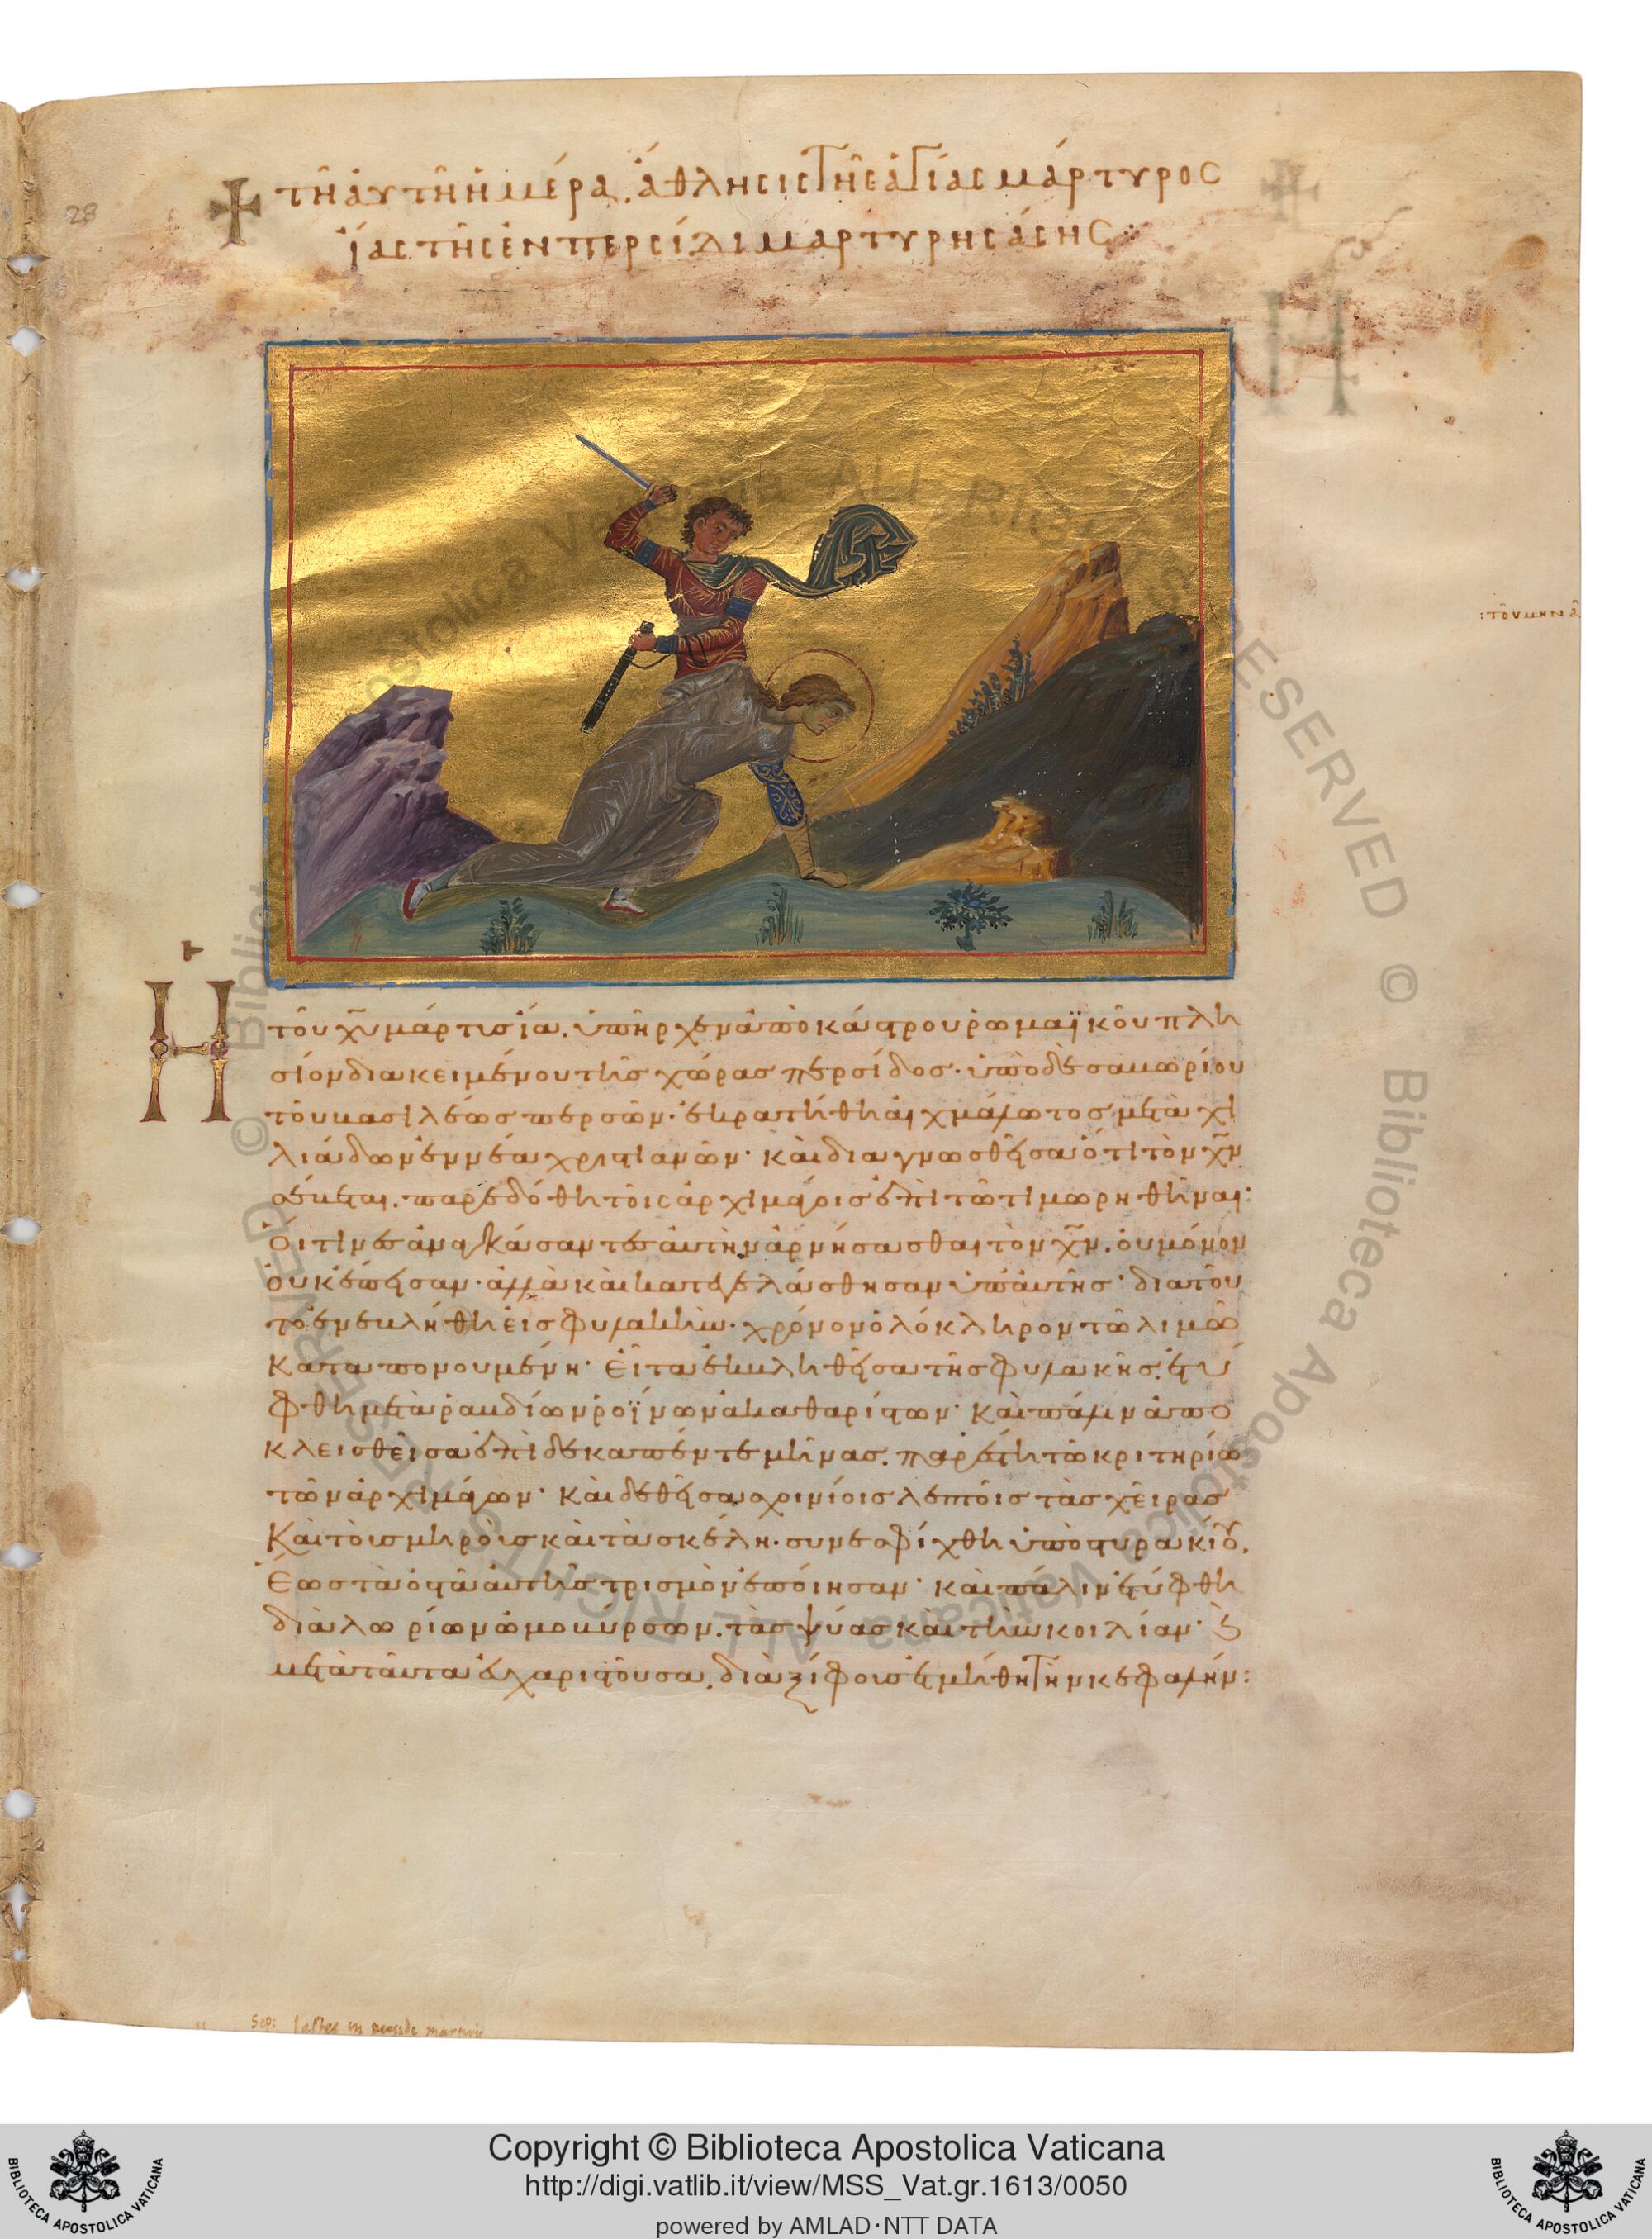 28
τῆ αὐτῆ ἡμέρα, ἄθλησις τῆς ἁγίας μάρτυρος
ἴας τῆς ἐν περσίδι μαρτυρησάσης:
Ἡ τοῦ χ̅υ̅ μάρτυς ἴα, ὑπῆρχεν ἀπὸ κάστρου ῥωμαϊκοῦ πλη
σίον διακειμένου τῆς χώρας περσίδος· ὑπὸ δὲ σαβωρίου
τοῦ βασιλέως περσῶν· ἐκρατήθη αἰχμάλωτος μετὰ χι
λιάδων ἐννέα χριστιανῶν· καὶ διαγνωσθεῖσα ὅτι τὸν χ̅ν̅
σέβεται, παρεδόθη τοῖς ἀρχιμάγοις ἐπὶ τῶ τιμωρηθῆναι·
Οἵτινες ἀναγκάσαντες αὐτὴν ἀρνήσασθαι τὸν χ̅ν̅, οὐ μόνον
οὐκ ἔπεισαν· ἀλλὰ καὶ κατεγελάσθησαν ὑπ' αὐτῆς· διὰ τοῦ
το ἐνεβλήθη εἰς φυλακὴν· χρόνον ὁλόκληρον τῶ λιμῶ
καταπονουμένη· Εἶτα ἐκβληθεῖσα τῆς φυλακῆς, ἐτύ
φθη μετὰ ῥαβδίων ῥοϊνων ἀκαθαρίστων· καὶ πάλιν ἀπο
κλεισθεῖσα ἐπὶ δεκαπέντε μῆνας, παρέστη τῶ κριτηρίω
τῶν ἀρχιμάγων· καὶ δεθεῖσα σχοινίοις λεπτοῖς τὰς χεῖρας
καὶ τοὺς μηροὺς καὶ τὰ σκέλη· συνεσφίχθη ὑπὸ στυρακίου,
Ἕως τὰ ὀστᾶ αὐτῆς τρισμὸν ἐποίησαν· καὶ πάλιν ἐτύφθη
διὰ λωρίων ὠμοβύρσων, τὰς ψύας καὶ τὴν κοιλίαν· καὶ
μετὰ ταῦτα εὐχαριστοῦσα, διὰ ξίφους ἐτμήθη τὴν κεφαλήν:
Copyright © Biblioteca Apostolica Vaticana
http://digi.vatlib.it/view/MSS_Vat.gr.1613/0050
powered by AMLAD·NTT DATA
BIBLIOTECA APOSTOLICA VATICANA
BIBLIOTECA APOSTOLICA VATICANA